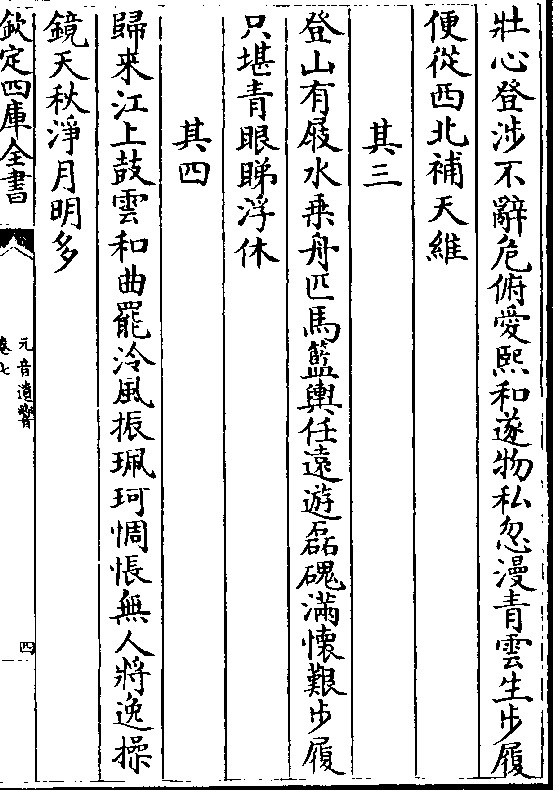 壯心登涉不辭危俯愛熙和遂物私忽漫青雲生步履
便從西北補天維
其三
登山有屐水乗舟匹馬籃輿任遠遊磊磈滿懷艱步履
只堪青眼睇浮休
其四
歸来江上鼓雲和曲罷泠風振珮珂惆悵無人將逸操
鏡天秋淨月明多
欽定四庫全書
元音遺響
卷七
四